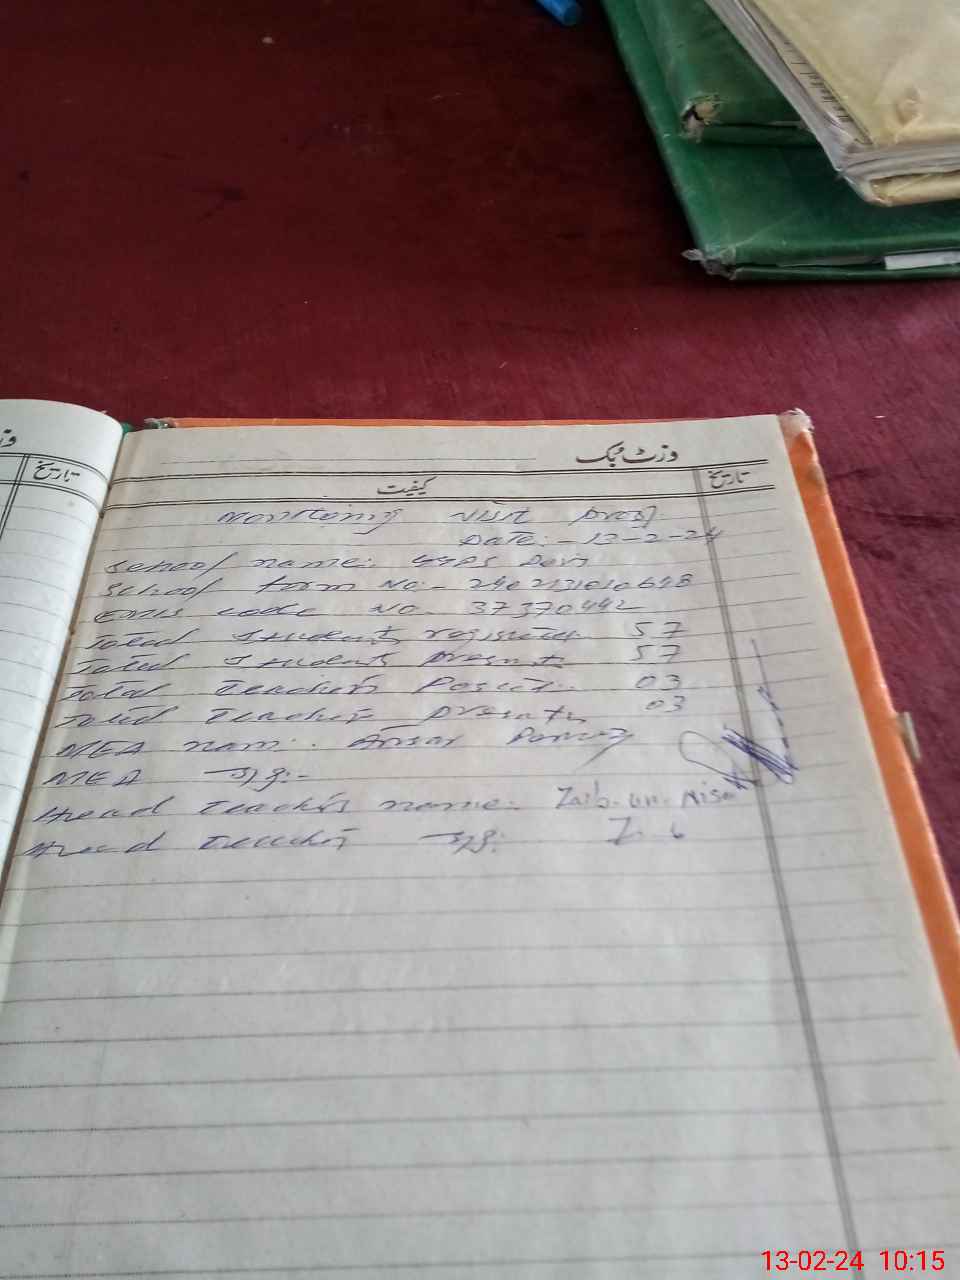 وزٹ بک
تاریخ
کیفیت
تاریخ
Monitoring visit
Date:- 13-2-24
School name: GGPS
School form No:- 2402131010648
EMIS code No- 37370442
Total Students register 57
Total Students presents 57
Total Teachers Posted:- 03
Total Teachers presents 03
MEA nam:- Ansar Parvez
MEA Sig:-
Head Teacher name:- Zaib-un-Nisa
Head Teacher Sig:
13-02-24 10:15